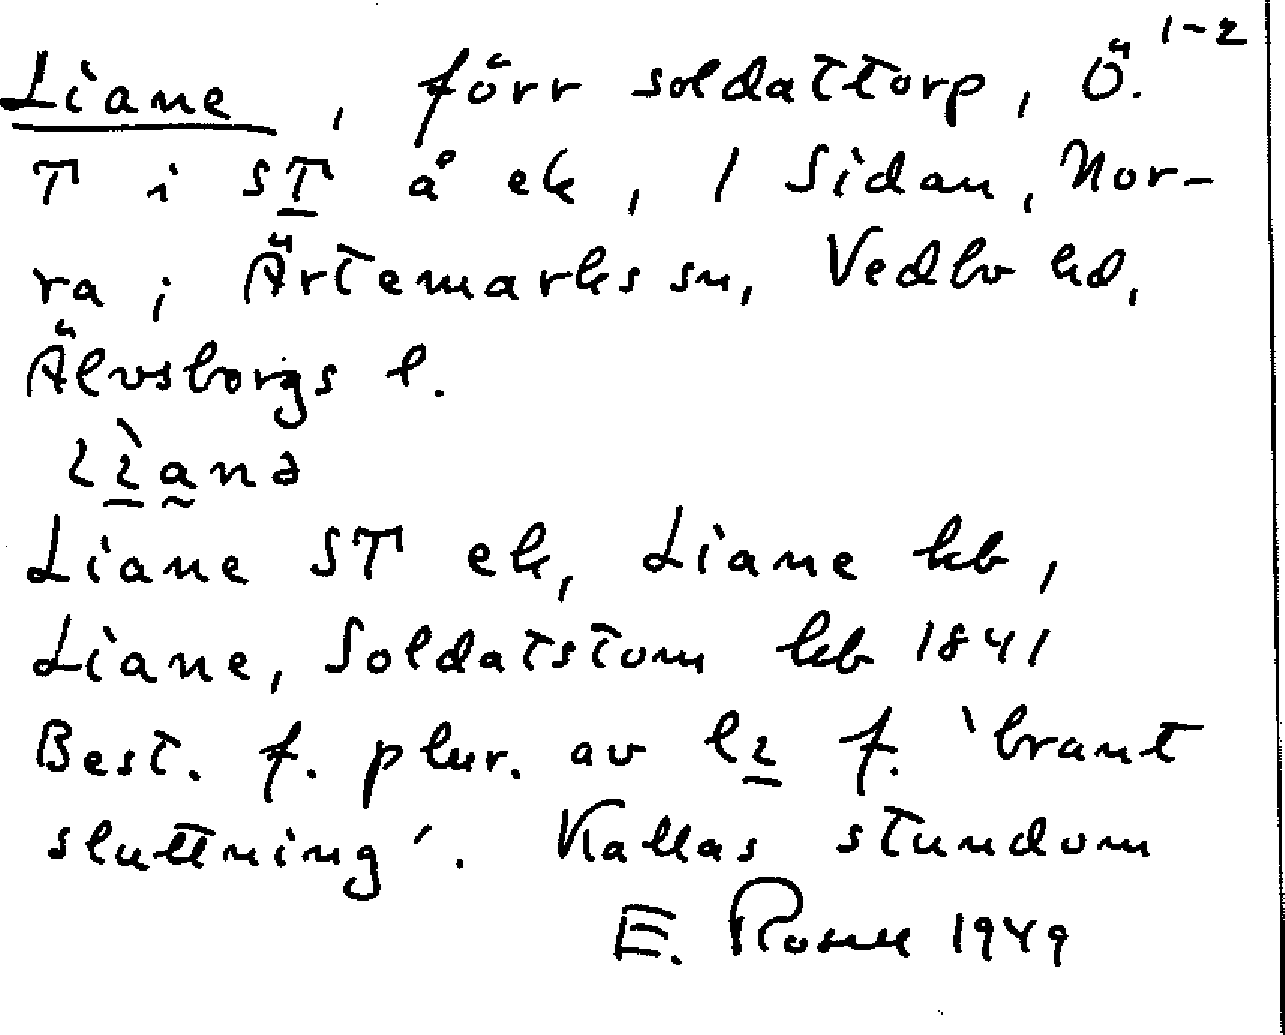 Liane, förr soldattorp, Ö. 1-2
T i ST å ek, 1 Sidan, Nor-
ra i Ärtemarks sn, Vedbo hd,
Älvsborgs l.
Liane ST ek, Liane kb,
Liane, Soldatstom kb 1841
Best. f. plur. av f. 'brant
sluttning'. Kallas stundom
E. Rosell 1949